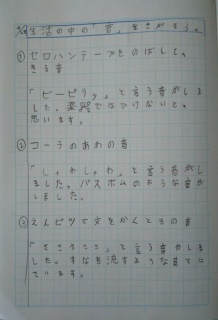 生活の中の「音」をさがそう。
① セロハンテープをのばして、
きる音
「ビービリッ」と言う音がし
ました。楽器ではひけないと、
思います。
② コーラのあわの音
「しゅわしゅわ」と言う音がし
ました。バスボムのような音が
しました。
③ えんピツで文をかくときの音
「ささささ」と言う音がしま
した。すなを流すような音でに
ています。